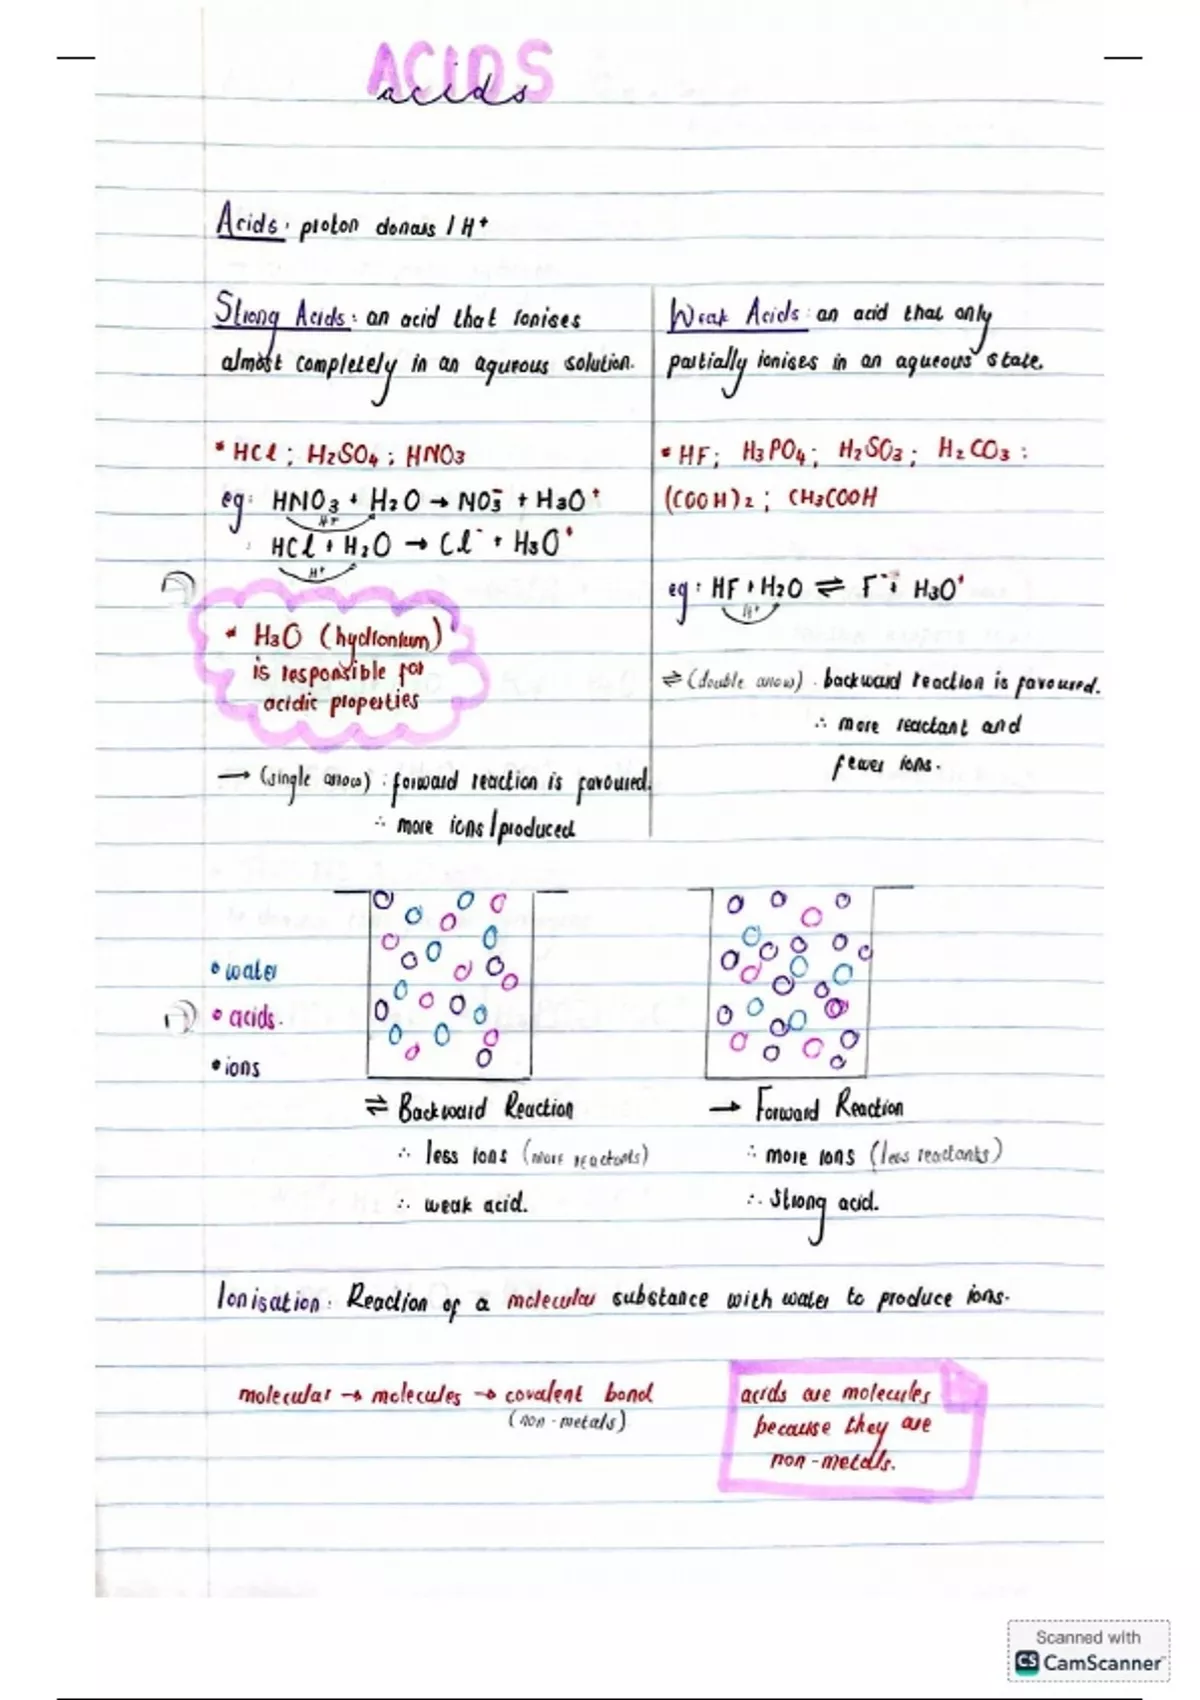 ACIDS
acids
Acids: proton donors / H+
Strong Acids: an acid that ionises
almost completely in an aqueous solution.
* HCl ; H2SO4 ; HNO3
eg: HNO3 + H2O → NO3- + H3O+
H+
: HCl + H2O → Cl- + H3O+
H+
* H3O (hydronium)
is responsible for
acidic properties
→ (single arrow) : forward reaction is favoured.
∴ more ions/produced
Weak Acids: an acid that only
partially ionises in an aqueous state.
* HF; H3PO4; H2SO3; H2CO3;
(COOH)2; CH3COOH
eg: HF + H2O ⇌ F- + H3O+
H+
⇌ (double arrow). backward reaction is favoured.
∴ more reactant and
fewer ions.
• water
• acids.
• ions
⇌ Backward Reaction
∴ less ions (more reactants)
∴ weak acid.
→ Forward Reaction
∴ more ions (less reactants)
∴ Strong acid.
Ionisation: Reaction of a molecular substance with water to produce ions.
molecular → molecules → covalent bond
(non-metals)
acids are molecules
because they are
non-metals.
Scanned with
CS CamScanner